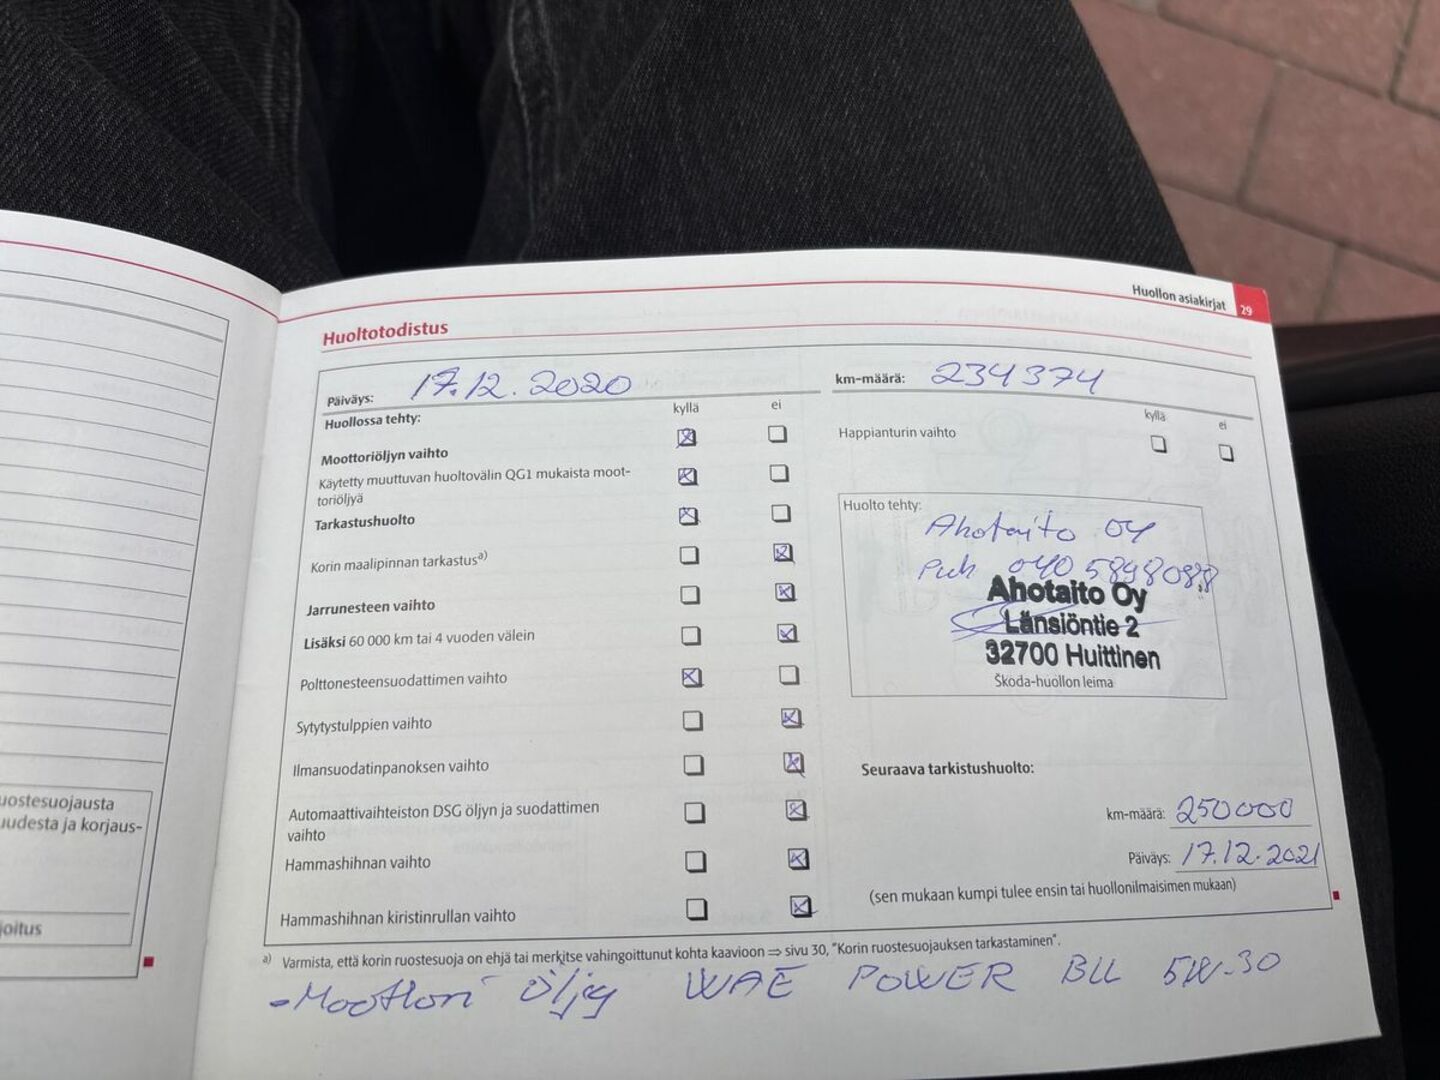 Huollon asiakirjat 29
Huoltotodistus
Päiväys: 17.12.2020
km-määrä: 234374
Huollossa tehty:
kyllä ei
Moottoriöljyn vaihto
Käytetty muuttuvan huoltovälin QG1 mukaista moot-
toriöljyä
Tarkastushuolto
Korin maalipinnan tarkastus a)
Jarrunesteen vaihto
Lisäksi 60 000 km tai 4 vuoden välein
Polttonesteensuodattimen vaihto
Sytytystulppien vaihto
Ilmansuodatinpanoksen vaihto
Automaattivaihteiston DSG öljyn ja suodattimen
vaihto
Hammashihnan vaihto
Hammashihnan kiristinrullan vaihto
kyllä ei
Happianturin vaihto
Huolto tehty:
Ahotaito OY
Puh 040 5898088
Ahotaito Oy
Länsiöntie 2
32700 Huittinen
Škoda-huollon leima
Seuraava tarkistushuolto:
km-määrä: 250000
Päiväys: 17.12.2021
(sen mukaan kumpi tulee ensin tai huollonilmaisimen mukaan)
a) Varmista, että korin ruostesuoja on ehjä tai merkitse vahingoittunut kohta kaavioon ⇒ sivu 30, "Korin ruostesuojauksen tarkastaminen".
-Moottori öljy WAE POWER BLL 5W-30
uostesuojausta
uudesta ja korjaus-
joitus